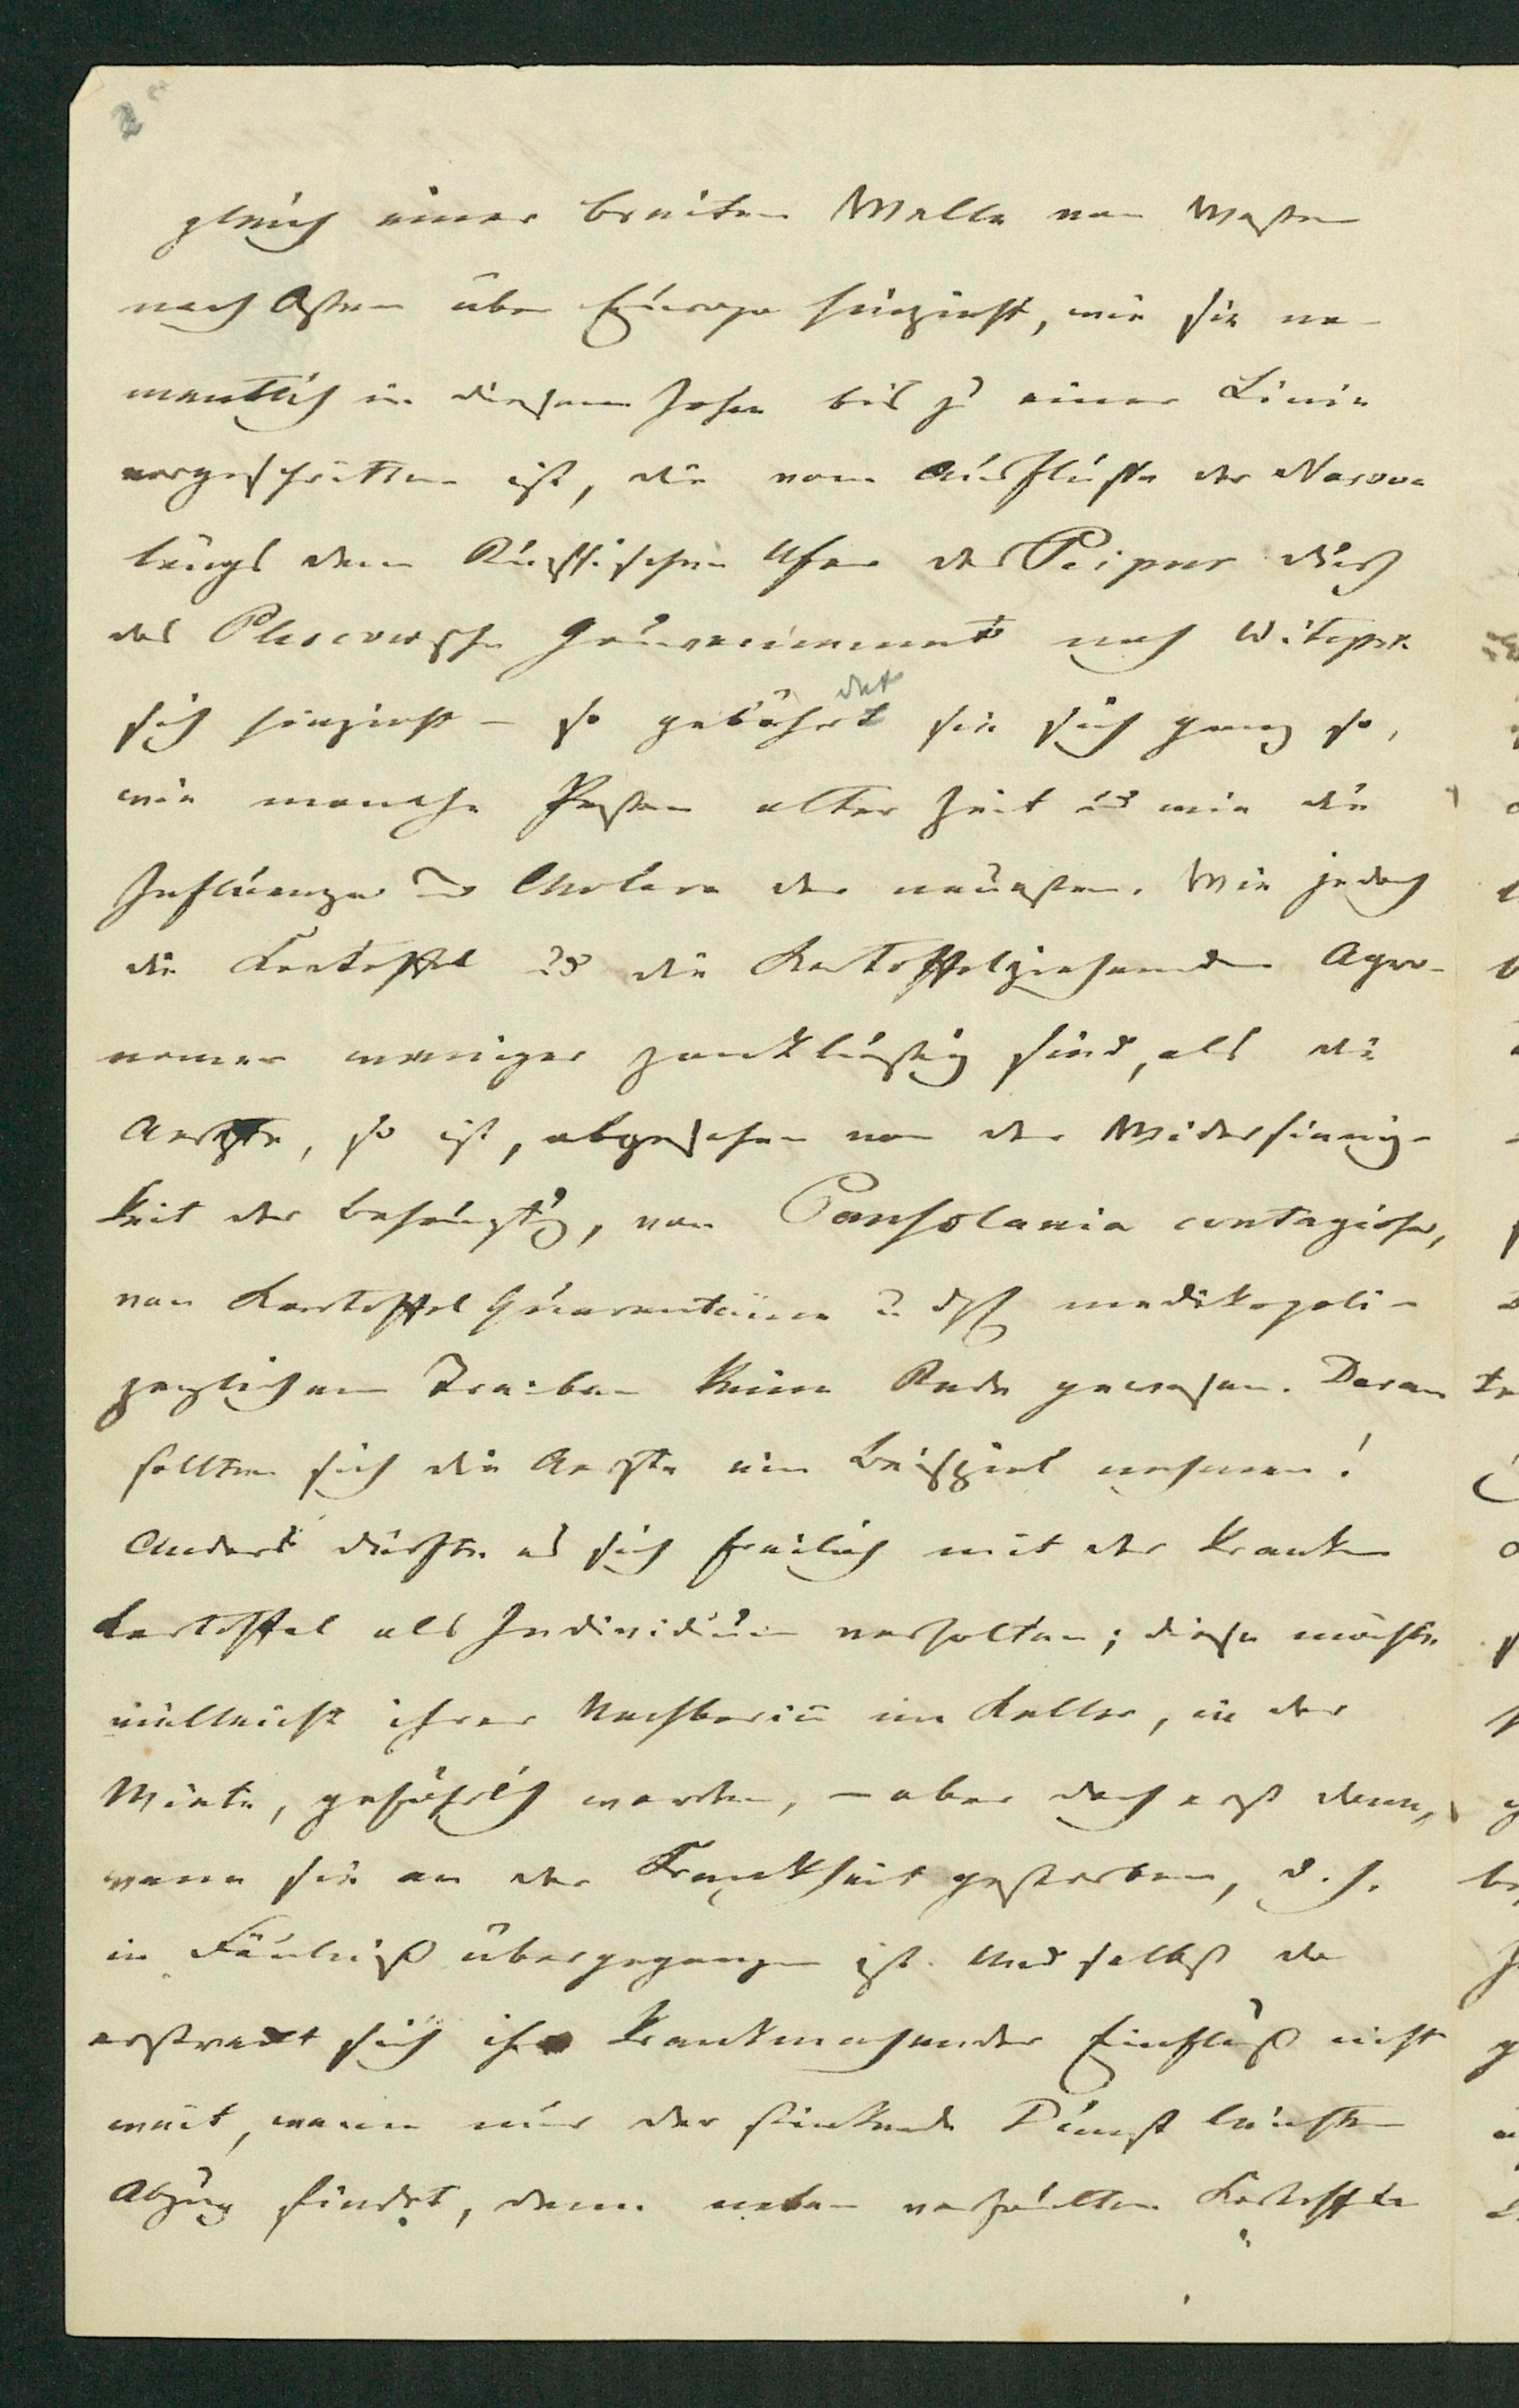 2
gleich einer breiten Welle von Westen
nach Osten über Europa hinzieht, wie sie na-
mentlich in diesem Jahre bis zu einer Linie
vorgeschritten ist, die vom Ausflusse der Narova
längs dem Russischen Ufer des Peipus durch
das Plescowsche Gouvernement nach Witepsk
sich hinzieht – so gebährdet sie sich ganz so,
wie manche Pesten alter Zeit und wie die
Influenza und Cholera der neuesten. Wie jedoch
die Kartoffel und die Kartoffelziehenden Agro-
nomen weniger zanklustig sind, als die
Aerzte, so ist, abgesehen von der Widersinnig-
keit der Behauptung, von Consolania contagiosa,
von Kartoffel Quarantainen u. dgl. medikopoli-
zeylichem Treiben keine Rede gewesen. Daran
sollten sich die Aerzte ein Beispiel nehmen!
Anders dürfte es sich freilich mit der kranken
Kartoffel als Individuum verhalten; diese möchte
vielleicht ihrer Nachbarin im Keller, in der
Miete, gefährlich werden, – aber doch erst dann,
wenn sie an der Krankheit gestorben, d. h.
in Fäulniß übergegangen ist. Und selbst da
erstreckt sich ihr krankmachender Einfluß nicht
weit, wenn nur der stinkende Dunst leichten
Abzug findet, denn neben verfaulten Kartoffeln